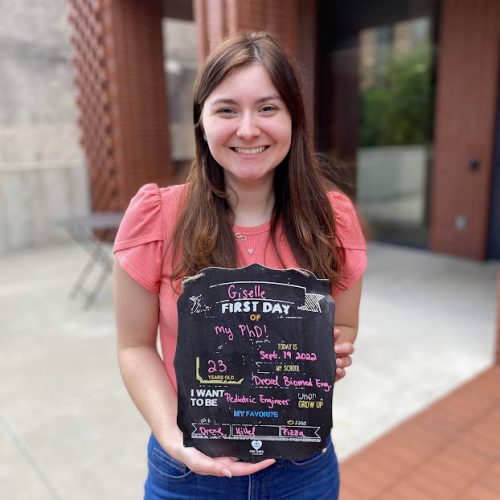 Giselle
FIRST DAY
OF
my PhD!
TODAY IS
Sept. 19 2022
23
YEARS OLD
MY SCHOOL
Drexel Biomed Eng.
I WANT
TO BE
Pediatric Engineer
when I
GROW UP
MY FAVORITE
FOOD
Drexel Hillel Pizza